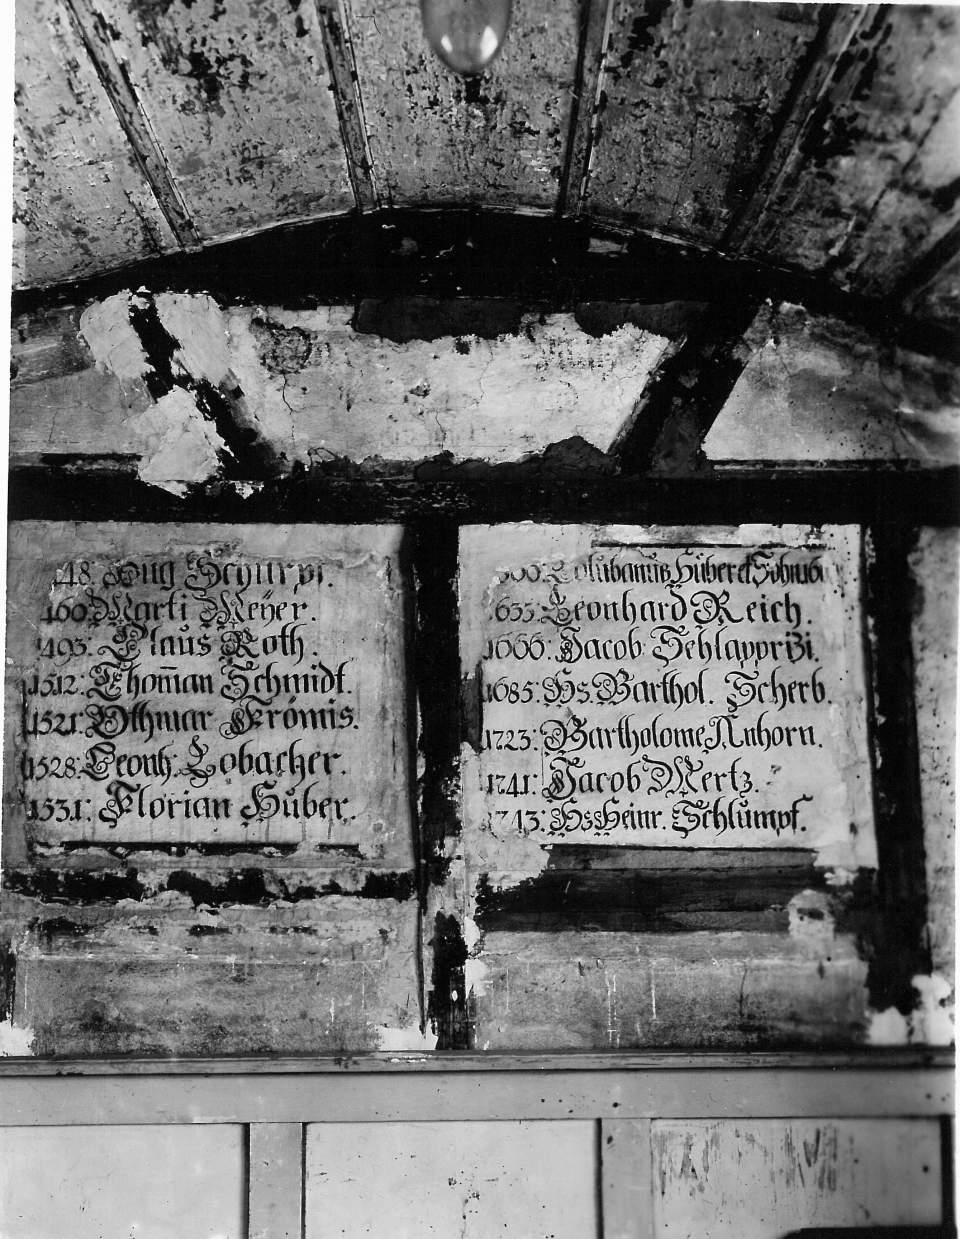 48. Schurpf.
1460: Marti Meÿer.
1493: Claůs Roth.
1512: Thom̄an Schmidt.
1521: Othmar Frömis.
1528: Leonh: Lobacher.
1531: Florian Hůber.
Hůber
1635: Leonhard Reich.
1666: Jacob Schlapprizi.
1685: Hs: Barthol. Scherb.
1723: Bartholome Anhorn.
1741: Jacob Mertz.
1743: Hs: Heinr. Schlůmpf.